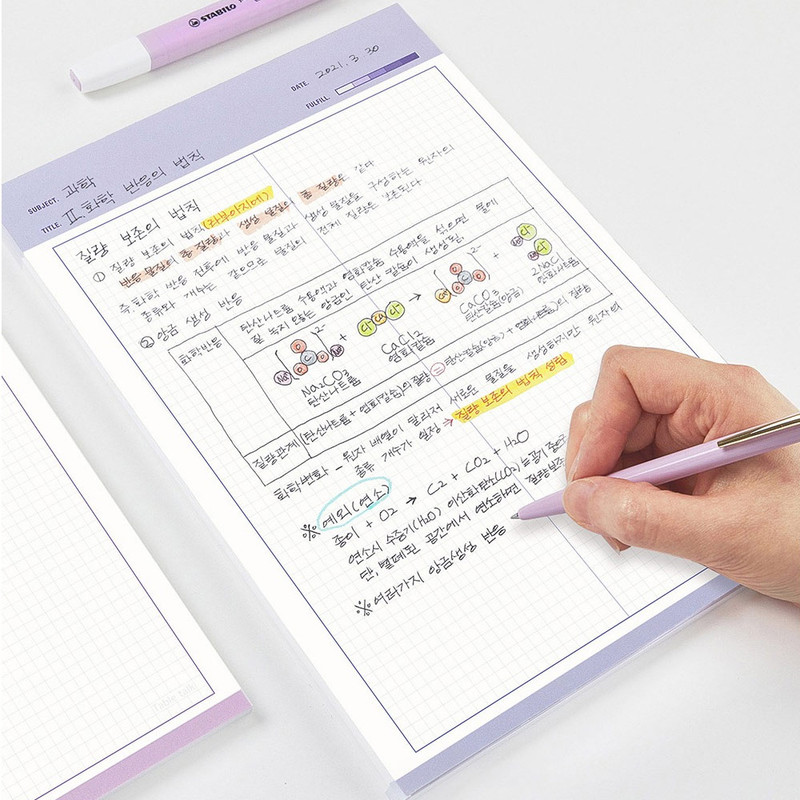 STABILO
DATE. 2021. 3. 30
FULFILL.
SUBJECT. 과학
TITLE. Ⅱ. 화학 반응의 법칙
질량 보존의 법칙
① 질량 보존의 법칙(라부아지에)
반응 물질의 총 질량과 생성 물질의 총 질량은 같다
주. 화학 반응 전후에 반응 물질과 생성 물질을 구성하는 원자의
종류와 개수는 같으므로 물질의 전체 질량은 보존된다
② 앙금 생성 반응
화학반응
탄산나트륨 수용액과 염화칼슘 수용액을 섞으면 물에
잘 녹지 않는 앙금인 탄산 칼슘이 생성됨.
Na O C O O Na 2- + Cl Ca Cl → Ca O C O O 2- + Na Cl Na Cl
Na2CO3 CaCl2 CaCO3 2NaCl
탄산나트륨 염화칼슘 탄산칼슘(앙금) 염화나트륨
질량관계 (탄산나트륨 + 염화칼슘)의 질량 = (탄산칼슘(앙금) + 염화나트륨)의 질량
화학변화 - 원자 배열이 달라져 새로운 물질을 생성하지만 원자의
종류 개수가 일정 → 질량 보존의 법칙 성립
※ 예외(연소)
종이 + O2 → C2 + CO2 + H2O
연소시 수증기(H2O) 이산화탄소(CO2)는 공기 중
단, 밀폐된 공간에서 연소하면 질량보존
※ 여러가지 앙금생성 반응